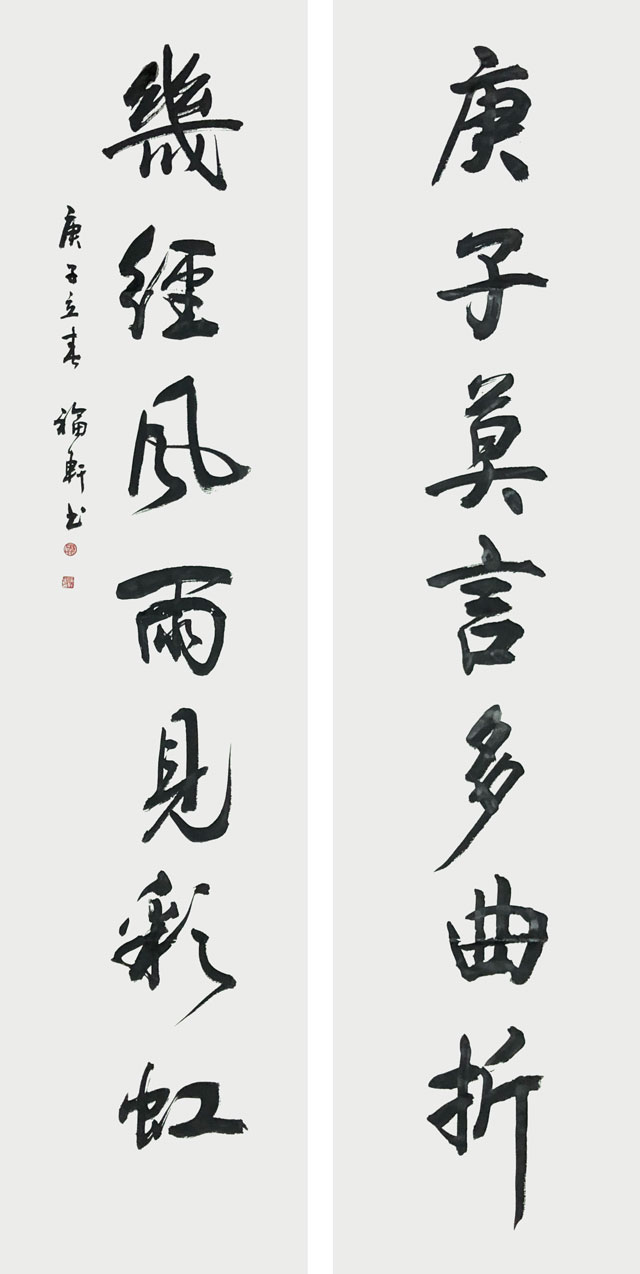 庚子莫言多曲折
幾經風雨見彩虹
庚子立春 福軒书